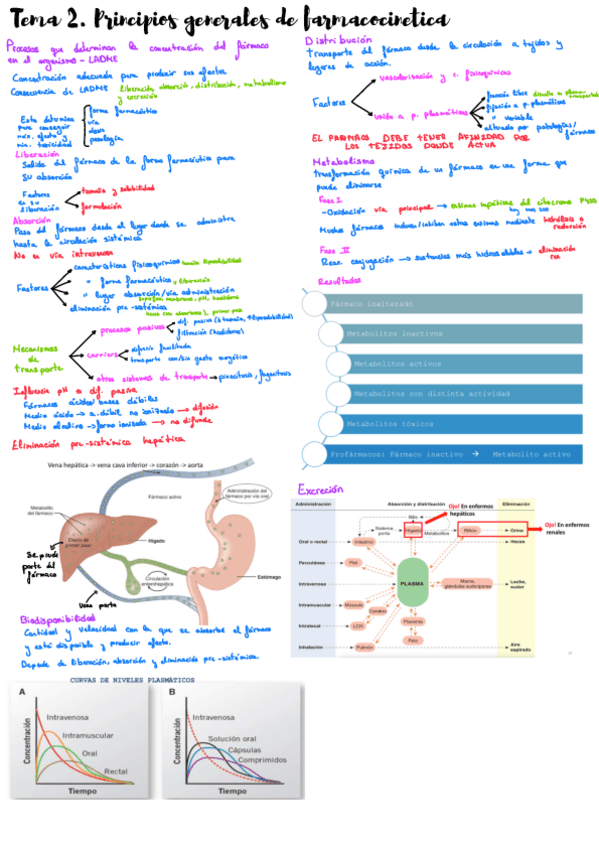 Tema 2. Principios generales de farmacocinetica
Procesos que determinan la concentración del fármaco
en el organismo - LADME
Concentración adecuada para producir sus efectos
Consecuencia de LADME liberación, absorción, distribución, metabolismo
y excreción
Esto determina
para conseguir
máx. efecto y
mín. toxicidad
forma farmacéutica
vía
dosis
posología
Liberación
Salida del fármaco de la forma farmacéutica para
su absorción
Factores
en su
liberación
tamaño y solubilidad
formulación
Absorción
Paso del fármaco desde el lugar donde se administra
hasta la circulación sistémica
No en vía intravenosa
Factores
características fisicoquímicas
" forma farmacéutica
" lugar absorción/vía administración
eliminación pre-sistémica
Mecanismos
de
transporte
procesos pasivos
dif. pasiva
filtración
carriers
difusión facilitada
transporte con/sin gasto energético
otros sistemas de transporte → pinocitosis, fagocitosis
Influencia pH a dif. pasiva
Fármacos ácidos/bases débiles
Medio ácido → a. débil no ionizado → difusión
Medio alcalino → forma ionizada → no difunde
Eliminación pre-sistémica hepática
Vena hepática -> vena cava inferior -> corazón -> aorta
Metabolito
del fármaco
Fármaco activo
Administración del
fármaco por vía oral
Efecto de
primer paso
Hígado
Se puede
parte del
fármaco
Circulación
enterohepática
Estómago
Vena porta
Biodisponibilidad
Cantidad y velocidad con la que se absorbe el fármaco
y está disponible y producir efecto.
Depende de liberación, absorción y eliminación pre-sistémica.
CURVAS DE NIVELES PLASMÁTICOS
A
Concentración
Intravenosa
Intramuscular
Oral
Rectal
Tiempo
B
Concentración
Intravenosa
Solución oral
Cápsulas
Comprimidos
Tiempo
Distribución
Transporte del fármaco desde la circulación a tejidos y
lugares de acción.
Factores
vascularización y c. fisicoquímicas
unión a p. plasmáticas
fracción libre
fijación a p. plasmáticas
" variable
alterada por patologías/
fármacos
EL FARMACO DEBE TENER AFINIDAD POR
LOS TEJIDOS DONDE ACTUA
Metabolismo
transformación química de un fármaco en una forma que
pueda eliminarse
Fase I
-Oxidación vía principal → enzimas hepáticas del citocromo P450
Muchos fármacos inducen/inhiben estas enzimas mediante hidrólisis o
reducción
Fase II
Reac. conjugación → sustancias más hidrosolubles → eliminación
Resultados
Fármaco inalterado
Metabolitos inactivos
Metabolitos activos
Metabolitos con distinta actividad
Metabolitos tóxicos
Profármacos: Fármaco inactivo → Metabolito activo
Excreción
Administración
Absorción y distribución
Ojo! En enfermos
hepáticos
Eliminación
Ojo! En enfermos
renales
Bilis
Sistema
porta
Hígado
Metabolitos
Riñón
Orina
Oral o rectal
Intestino
Heces
Percutánea
Piel
Intravenosa
PLASMA
Mama,
glándulas sudoríparas
Leche,
sudor
Intramuscular
Músculo
Cerebro
Placenta
Intratecal
LCR
Feto
Inhalación
Pulmón
Aire
espirado